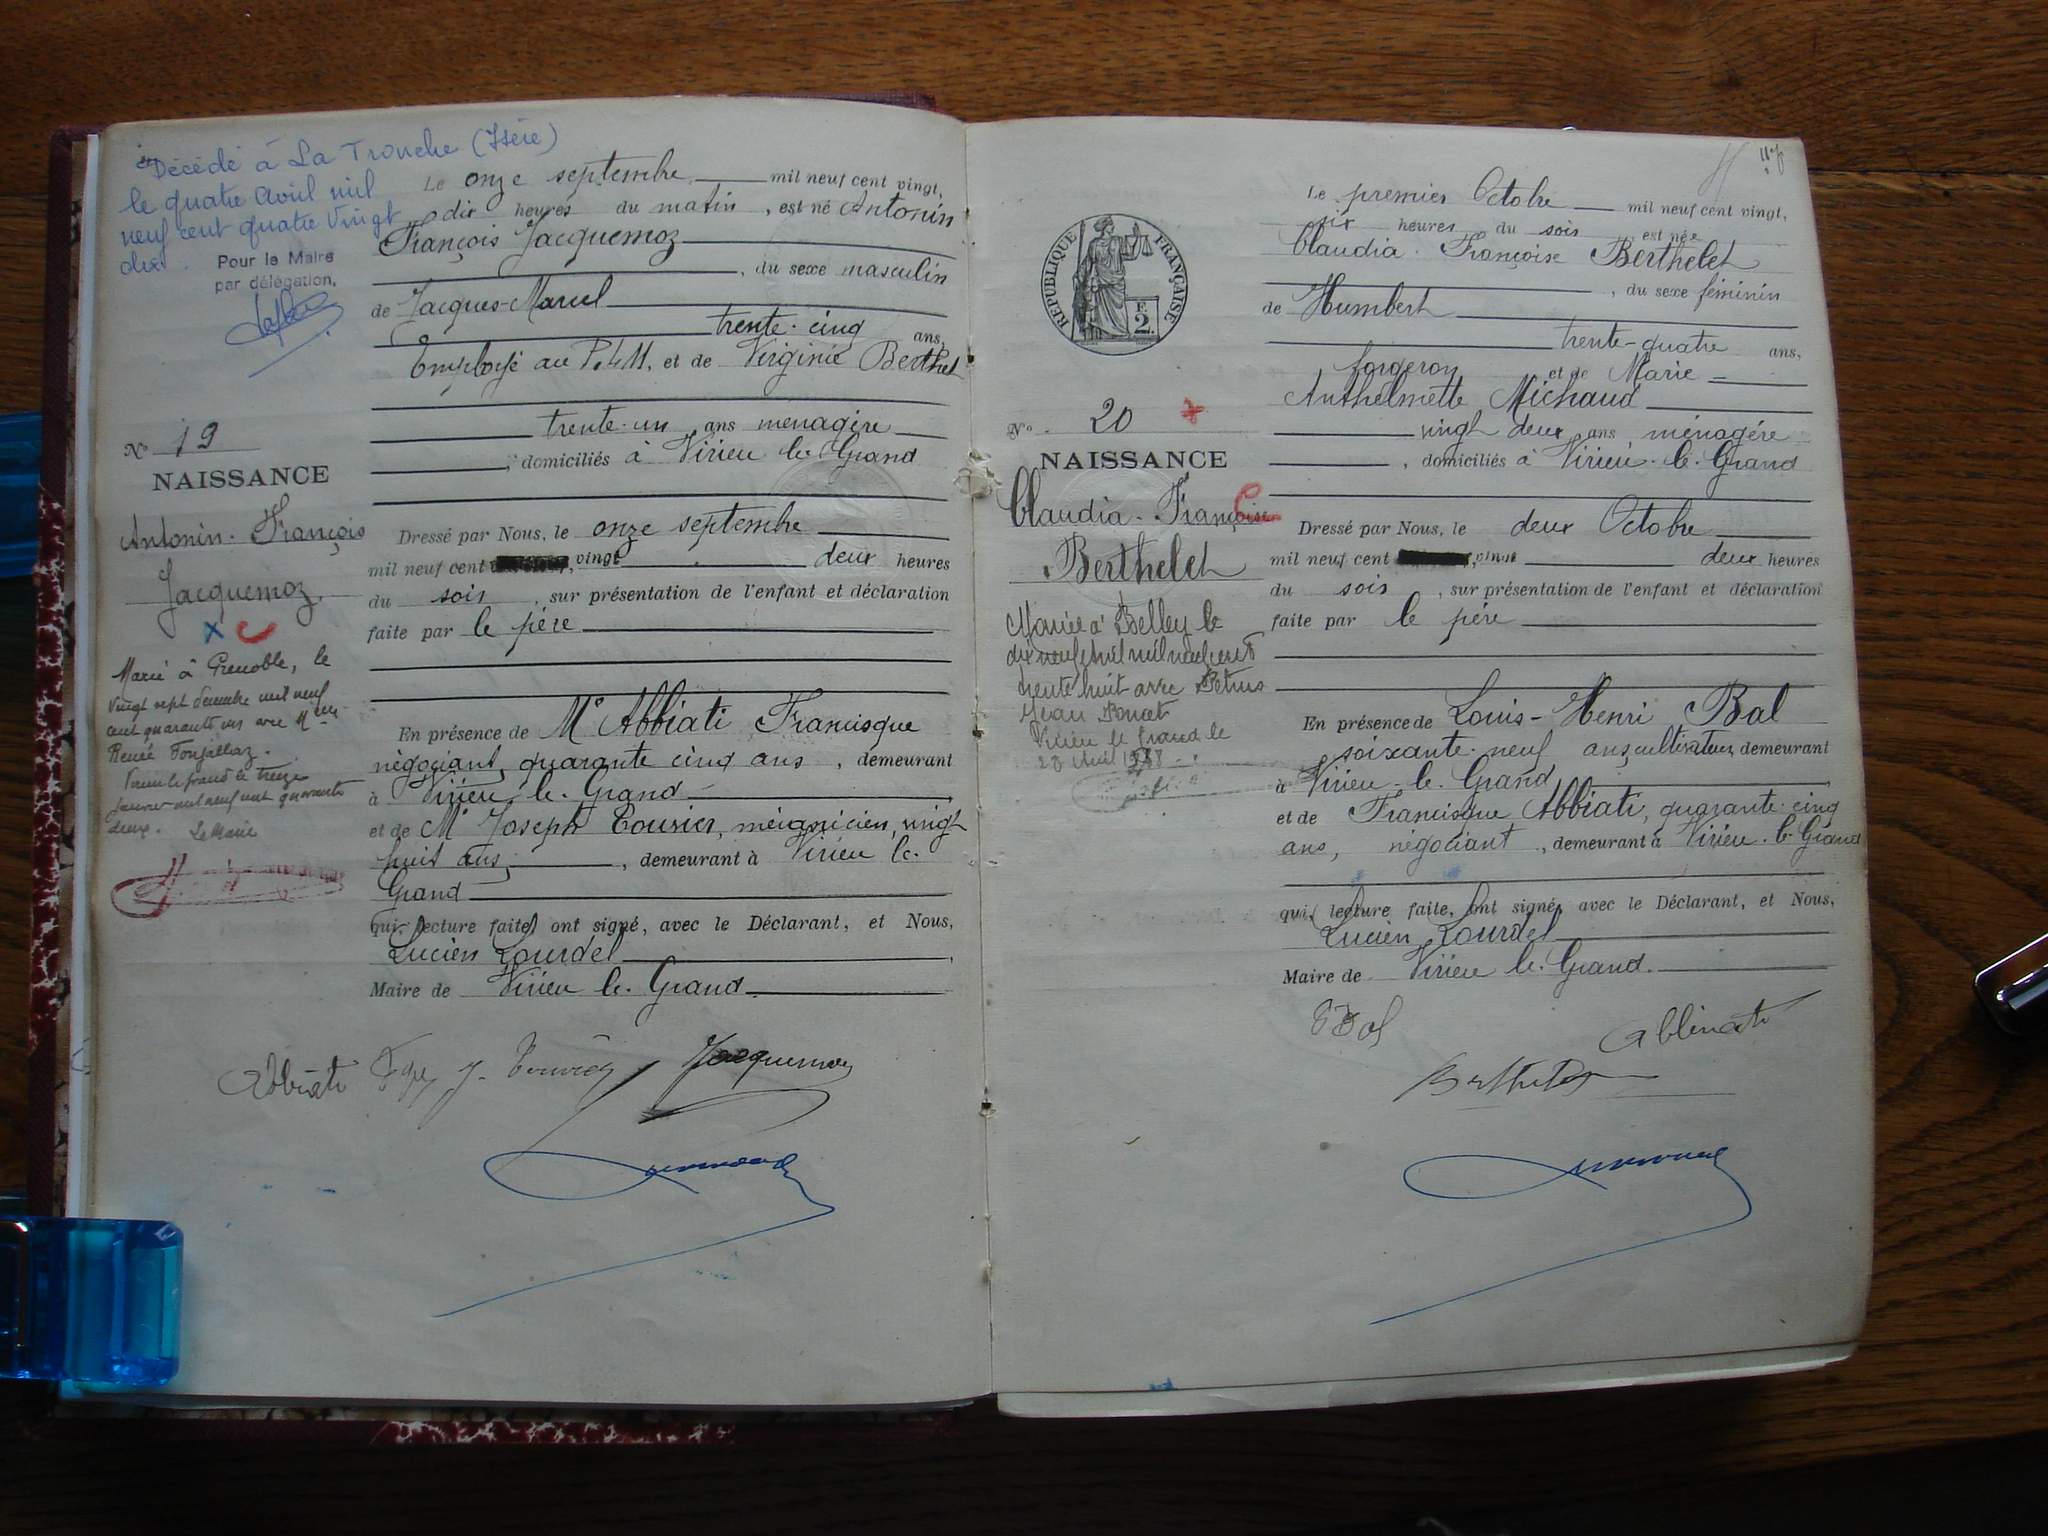 Décédé à La Tronche (Isère)
le quatre Avril mil
neuf cent quatre vingt
dix.
Pour le Maire
par délégation,
Nº 19
NAISSANCE
Antonin-François
Jacquemoz
Marié à Grenoble, le
vingt sept décembre mil neuf
cent quarante un avec Melle
Renée
Virieu le Grand le treize
janvier mil neuf cent quarante
deux. Le Maire
Le onze septembre mil neuf cent vingt,
dix heures du matin, est né Antonin
François Jacquemoz
, du sexe masculin
de Jacques-Marcel
trente-cinq ans,
Employé au P.L.M. et de Virginie Berthet
trente-un ans ménagère
, domiciliés à Virieu le-Grand
Dressé par Nous, le onze septembre
mil neuf cent vingt deux heures
du soir, sur présentation de l'enfant et déclaration
faite par le père
En présence de Mr Abbiati Francisque
négociant, quarante cinq ans, demeurant
à Virieu-le-Grand
et de Mr Joseph Touvier, mécanicien, vingt
huit ans, demeurant à Virieu le-
Grand
qui, lecture faite, ont signé, avec le Déclarant, et Nous,
Lucien Lourdel
Maire de Virieu le-Grand
Abbiati J. Touvier Jacquemoz
RÉPUBLIQUE FRANÇAISE
F.
2.
Nº 20
NAISSANCE
Claudia-Françoise
Berthelet
Mariée à Belley le
dix neuf Avril mil neuf cent
trente huit avec Petrus
Jean
Virieu le Grand le
Le premier Octobre mil neuf cent vingt,
six heures du soir, est née
Claudia-Françoise Berthelet
, du sexe féminin
de Humbert
trente-quatre ans,
forgeron et de Marie
Anthelmette Michaud
vingt deux ans, ménagère
, domiciliés à Virieu-le-Grand
Dressé par Nous, le deux Octobre
mil neuf cent vingt deux heures
du soir, sur présentation de l'enfant et déclaration
faite par le père
En présence de Louis-Henri Bal
soixante-neuf ans, cultivateur, demeurant
à Virieu-le-Grand
et de Francisque Abbiati, quarante-cinq
ans, négociant, demeurant à Virieu-le-Grand
qui, lecture faite, ont signé, avec le Déclarant, et Nous,
Lucien Lourdel
Maire de Virieu le-Grand
Bal Abbiati
Berthelet